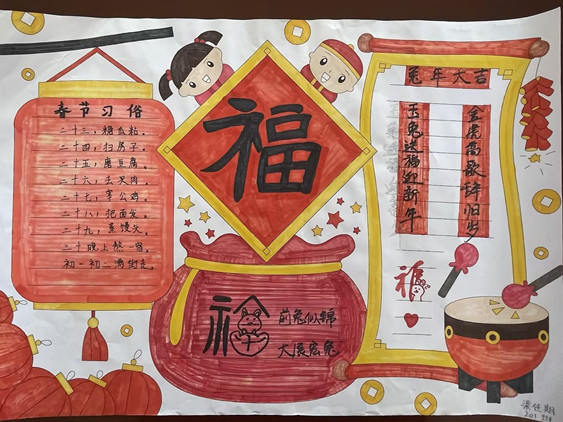 春节习俗
二十三，糖瓜粘。
二十四，扫房子。
二十五，磨豆腐。
二十六，去买肉。
二十七，宰公鸡。
二十八，把面发。
二十九，蒸馒头。
三十晚上熬一宵。
初一初二满街走。
福
前兔似锦
大展宏兔
兔年大吉
金虎高歌辞旧岁
玉兔送福迎新年
福